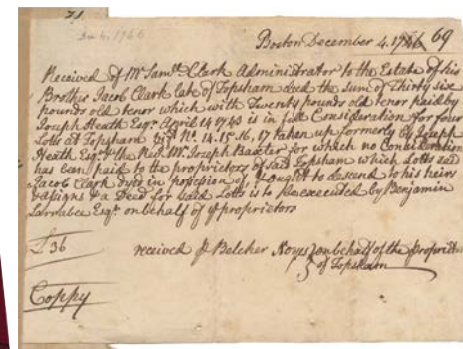 71
Dec 4. 1746
Boston December 4. 1746 69
Received of Mr Samll Clark Administrator to the Estate of his
Brother Jacob Clark late of Topsham decd the sum of Thirty six
pounds old tenor which with Twenty pounds old tenor paid by
Joseph Heath Esqr April 14 1743 is in full Consideration for four
Lotts at Topsham No. 14. 15. 16. 17 taken up formerly by Joseph
Heath Esqr & the Rev. Mr. Joseph Baxter for which no Consideration
has been paid to the proprietors of said Topsham which Lotts said
Jacob Clark dyed in possession of & ought to descend to his heirs
& assigns & a Deed for said Lotts is to be executed by Benjamin
Larrabee Esqr on behalf of ye proprietors
£36
received Belcher Noyes on behalf of the Propriet
of Topsham
Coppy